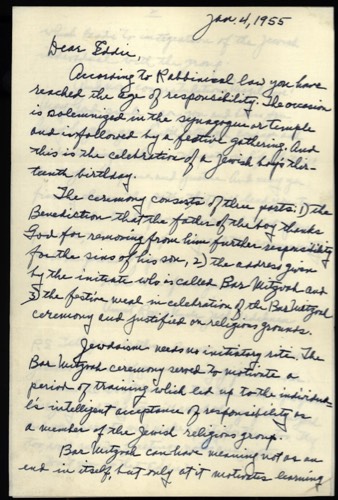 Jan. 4, 1955
Dear Eddie,
According to Rabbinical law you have
reached the age of responsibility. The occasion
is solemnized in the synagogue or temple
and is followed by a festive gathering. And
this is the celebration of a Jewish boy's thir-
teenth birthday.
The ceremony consists of three parts: 1) the
Benediction that the father of the boy thanks
God for removing from him further responsibility
for the sins of his son, 2) the address given
by the initiate who is called Bar Mitzvah and
3) the festive meal in celebration of the Bar Mitzvah
ceremony and justified on religious grounds.
needs no initiatory rite. The
Bar Mitzvah ceremony served to motivate a
period of training which led up to the individu-
al's intelligent acceptance of responsibility as
a member of the Jewish religious group.
Bar Mitzvah can have meaning not as an
end in itself, but only as it motivates learning